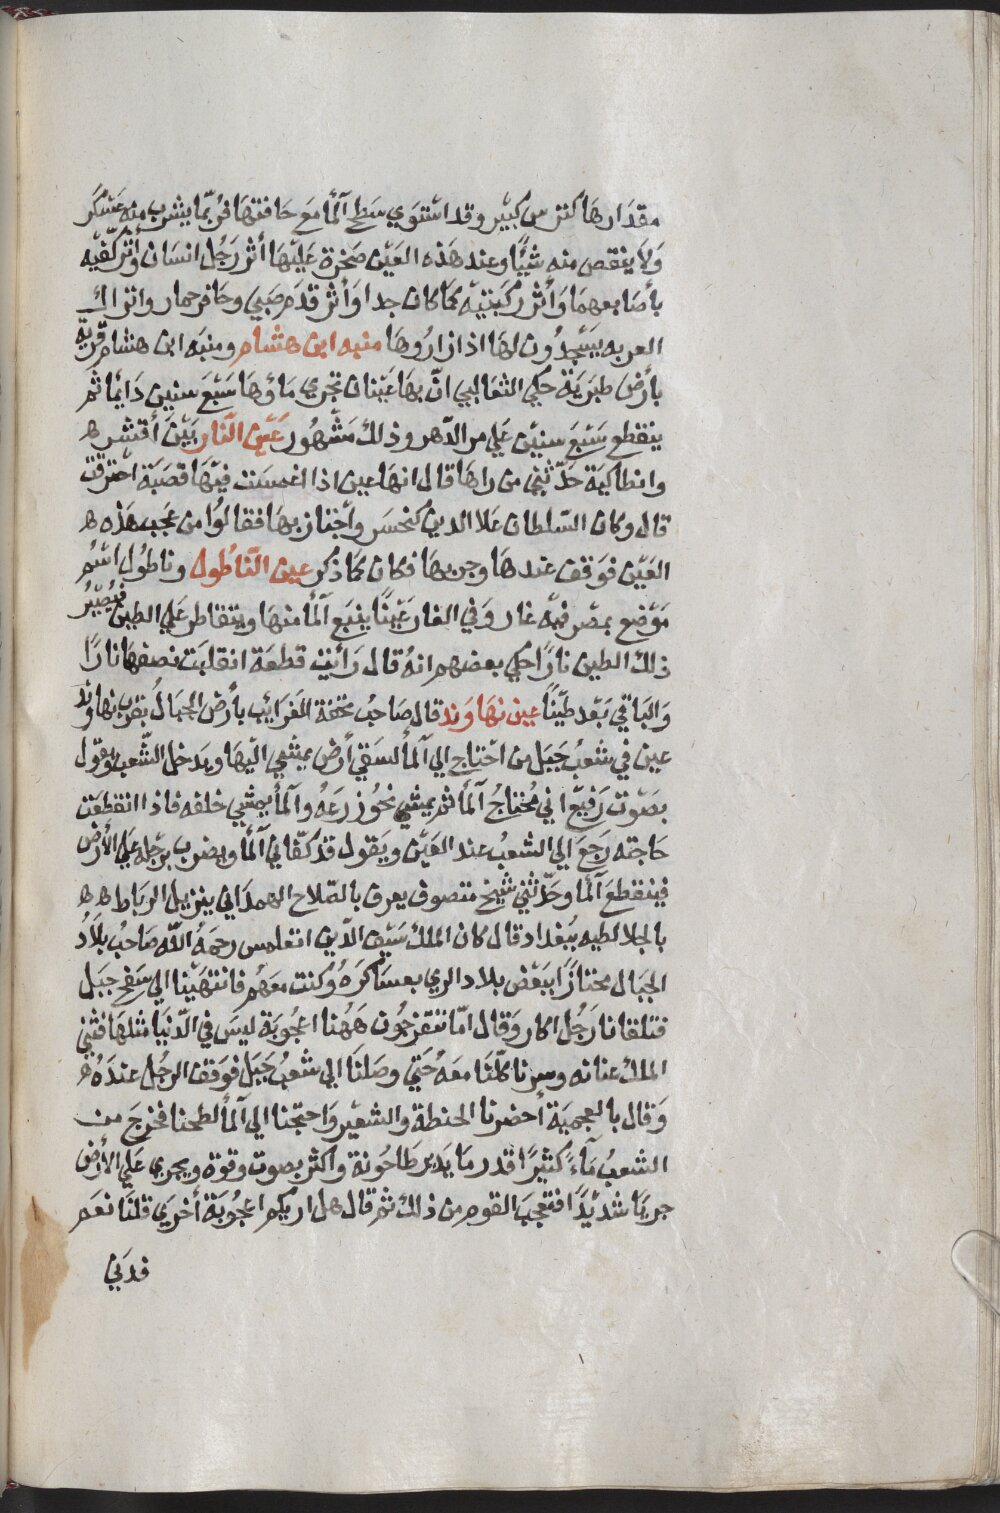 مقدَارهَا كترس كبيْر وقد اسْتوي سَطح اَلْمَا مَع حَافتهَا فرُبّما يشرَب منه عَسْكَر
وَلاَ ينقص منه شيْأً وعند هَذه العَيْن صَخرة عَليْهَا أثر رَجُل انسَان وَأثر كفّيْه
بأصَابعهمَا وَأثر ركبَتيْه كمَا كان جدا وَأثر قدَم صَبي وحَافر حمار واتراك
العربه يسَجدُون لهَا اذا زارُوهَا منبه ابن هشام ومنبَه ابن هشام قرية
بأرض طبَريَة حكي الثعَالبي انّ بهَا عَيْنان تجري مَاؤهَا سَبْعَ سنين دَايمًا ثم
ينقطع سَبْعَ سنيْن عَلي مر الدّهر وذلك مَشْهُور عَيْن النّار بَيْنَ أقشر ه
وانطاكيَة حَدّثني من راهَا قال انهَا عين اذا اغمسَت فيْهَا قصَبَة احْترقت
قال وكان السّلطان عَلا الدين كنخسَر واجْتاز بهَا فقالوُا من عَجَب هَذه ه
العَيْن فوَقف عندهَا وجربهَا فكان كمَا ذكر عين النّاطُول وناطُول اسْم
مَوْضع بمصْر فيْه غار وَفي الغار عَيْنًا ينبَع اَلْمَا منهَا ويتقاطر عَلي الطين فيُصَيّرُ
ذلك الطين نارًا حكي بعضهم انهُ قال رَأيْت قطعَة انقلبَت نصفهَا نارًا
وَالبَاقي بَعْد طيْنًا عين نهَا وَند قال صَاحبُ تحفة الغَرَائب بأرض الجبَال بقرب نهاوَند
عين في شعْبُ جَبَل من احْتاج الي اَلْمَا لسَقي أرض يمشي اليْهَا ويَدخل الشّعب ويقول
بصَوْت رَفيْع اني مُحْتاجُ اَلْمَا ثم يمشي نحْو زرعَهُ وَالْمَا يمشي خلفه فاذا انقطعَت
حَاجته رَجعَ الي الشعبُ عند العَيْن ويَقول قد كفّاني اَلْمَا ويضرب برجله عَلي الأرض
فينقطعَ اَلْمَا وحَدّثني شيْخ متصوف يعرف بالملاح الهمدَاني ينزيل الربَاط ه ه
بالجلالطيه ببُغداد قال كان الملك سَيْف الدّين اتغلمس رحمَهُ اللّه صَاحبُ بلاَدُ
الجبَال مجتازًا ببَعْض بلاد الري بعسَاكرَهُ وُكنت معَهُم فانتهَيْنا الي سَفح جبَل
فتلقانا رَجُل اكار وَقال امّا تتفرّجُون هَهُنا اعْجُوبَة ليسَ في الدّنيَا مثلهَا فثني
الملك عنانه وسرنا كلّنا معَهُ حَتي وصَلنَا الي شعْبُ جَبَل فوَقف الرجُل عندَهُ ه
وَقال بالعجميَة أحضرنا الحنطة والشعيْر وَاحتجْنا الي اَلْمَا لطحنا فخرَج من
الشعبُ مَآءً كثيْرًا قدر مَا يَدير طَاحُونة وَاكثر بصوت وقوة ويجري عَلي الأرض
جريًا شديْدًا فتعجبَ القوم من ذلك ثم قال هل اريكم اعْجُوبَة أخريَ قلنَا نعَم
فدَني